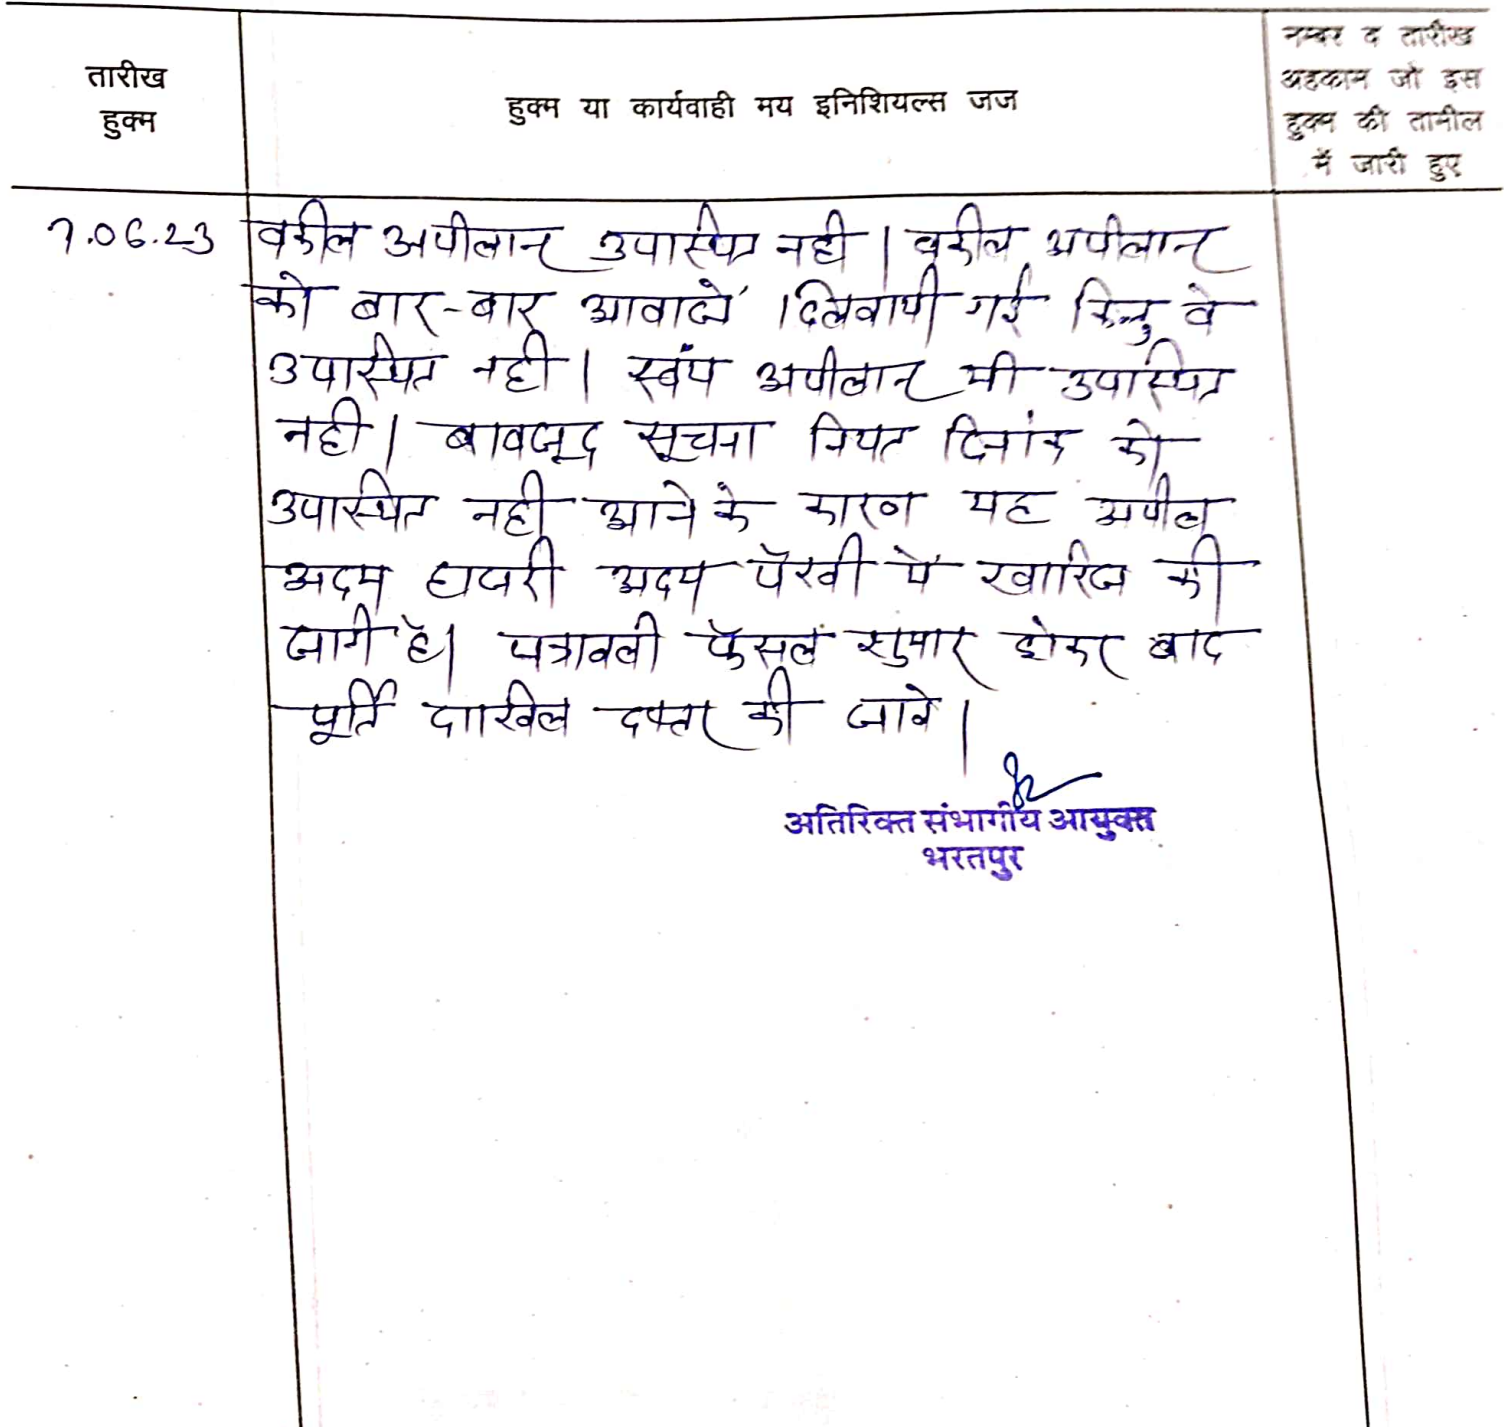 तारीख
हुक्म
हुक्म या कार्यवाही मय इनिशियल्स जज
नम्बर व तारीख
अहकाम जो इस
हुक्म की तामील
में जारी हुए
7.06.23
वकील अपीलान्ट उपस्थित नही । वकील अपीलान्ट
को बार-बार आवाजे दिलवायी गई किन्तु वे
उपस्थित नही । स्वंय अपीलान्ट भी उपस्थित
नही । बावजूद सूचना नियत दिनांक को
उपस्थित नही आने के कारण यह अपील
अदम हाजरी अदम पैरवी मे खारिज की
जाती है। पत्रावली फैसल शुमार होकर बाद
पूर्ति दाखिल दफ्तर की जावे ।
अतिरिक्त संभागीय आयुक्त
भरतपुर